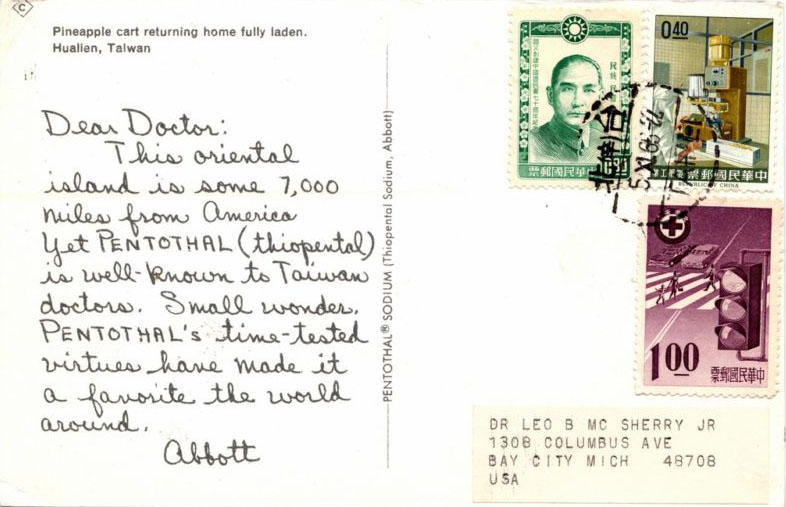 C
Pineapple cart returning home fully laden.
Hualien, Taiwan
Dear Doctor:
This oriental
island is some 7,000
miles from America
Yet PENTOTHAL (thiopental)
is well-known to Taiwan
doctors. Small wonder.
PENTOTHAL's time-tested
virtues have made it
a favorite the world
around.
Abbott
PENTOTHAL® SODIUM (Thiopental Sodium, Abbott)
票郵國民華中
0.40
票郵國民華中
REPUBLIC OF CHINA
1.00
票郵國民華中
DR LEO B MC SHERRY JR
1308 COLUMBUS AVE
BAY CITY MICH 48708
USA